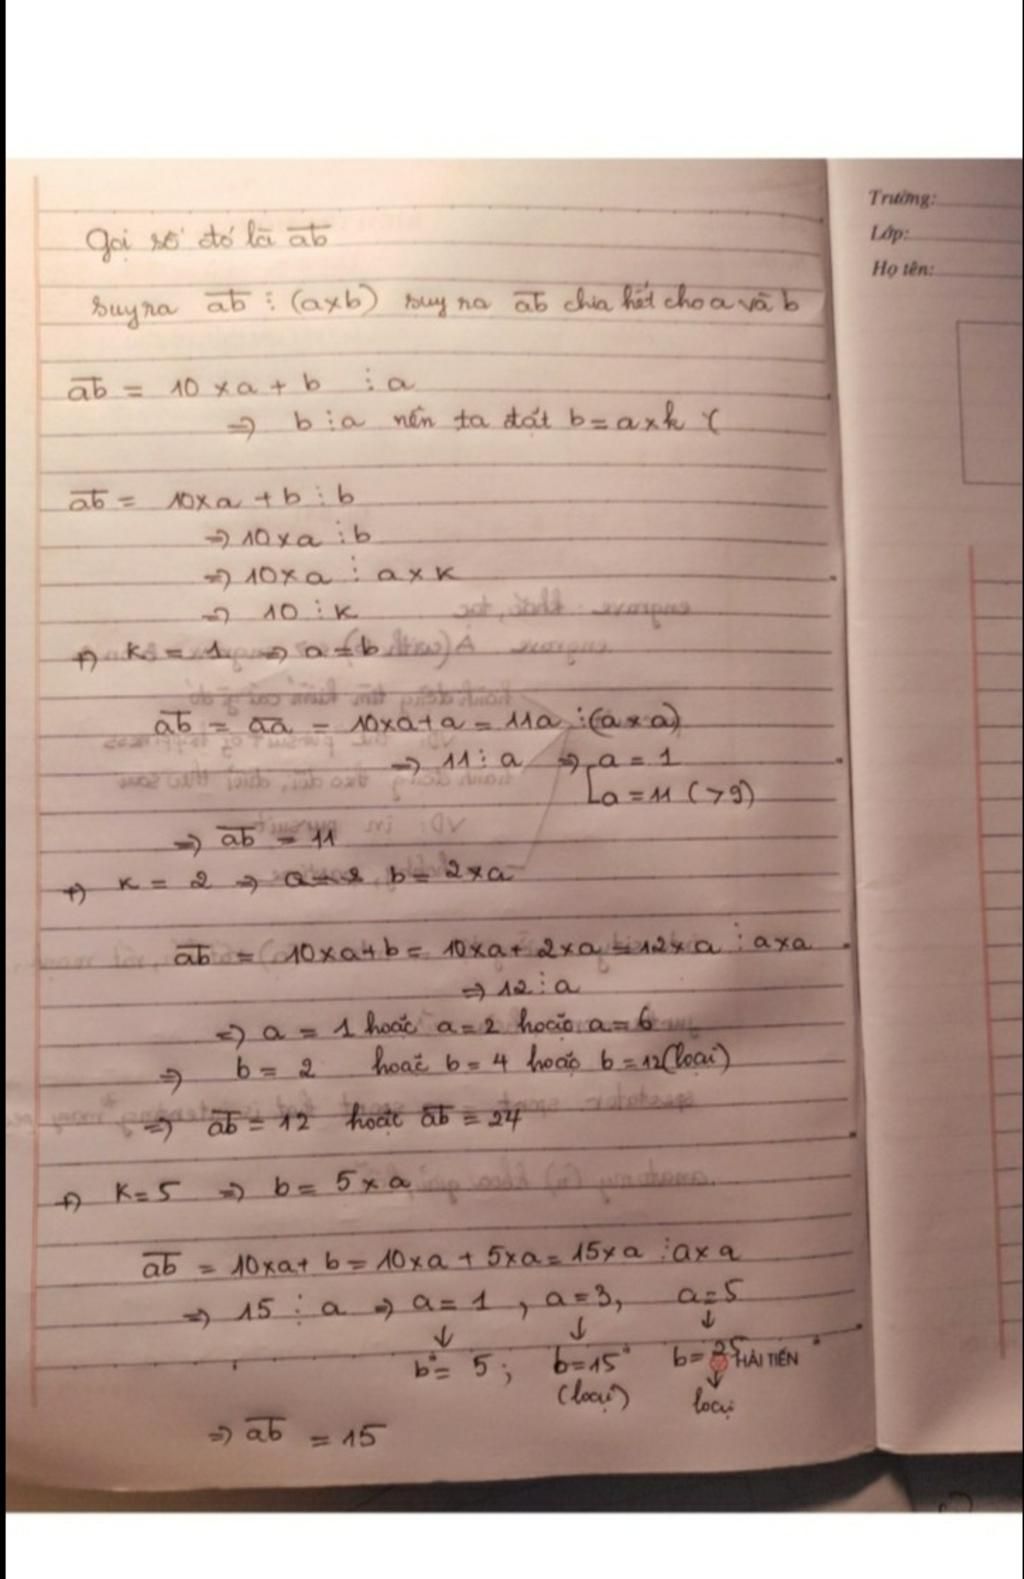 Trường:
Lớp:
Họ tên:
Gọi số đó là ab
suy ra ab ⋮ (a×b) suy ra ab chia hết cho a và b
ab = 10×a + b ⋮ a
=> b ⋮ a nên ta đặt b = a×k (
ab = 10×a + b ⋮ b
=> 10×a ⋮ b
=> 10×a ⋮ a×k
=> 10 ⋮ k
+) k = 1 => a = b
ab = aa = 10×a+a = 11a ⋮ (a×a)
=> 11 ⋮ a => [a = 1
a = 11 (>9)
=> ab = 11
+) k = 2 => b = 2×a
ab = 10×a+b = 10×a+ 2×a = 12×a ⋮ a×a
=> 12 ⋮ a
=> a = 1 hoặc a = 2 hoặc a = 6
=> b = 2 hoặc b = 4 hoặc b = 12 (loại)
=> ab = 12 hoặc ab = 24
+) k = 5 => b = 5×a
ab = 10×a+ b = 10×a + 5×a = 15×a ⋮ a×a
=> 15 ⋮ a => a = 1 , a = 3, a = 5
↓ ↓ ↓
b = 5 ; b = 15 b = 25 HẢI TIẾN
(loại) ↓ loại
=> ab = 15